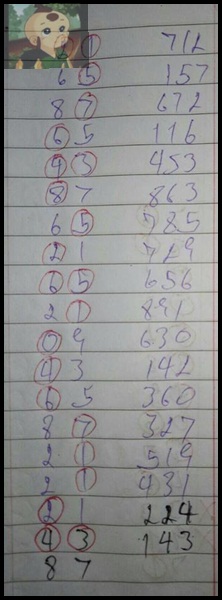 1 712
6 5 157
8 7 672
6 5 116
4 3 453
8 7 863
6 5 785
2 1 729
6 5 656
2 1 891
0 9 630
4 3 142
6 5 360
8 7 327
2 1 519
2 1 431
2 1 224
4 3 143
8 7